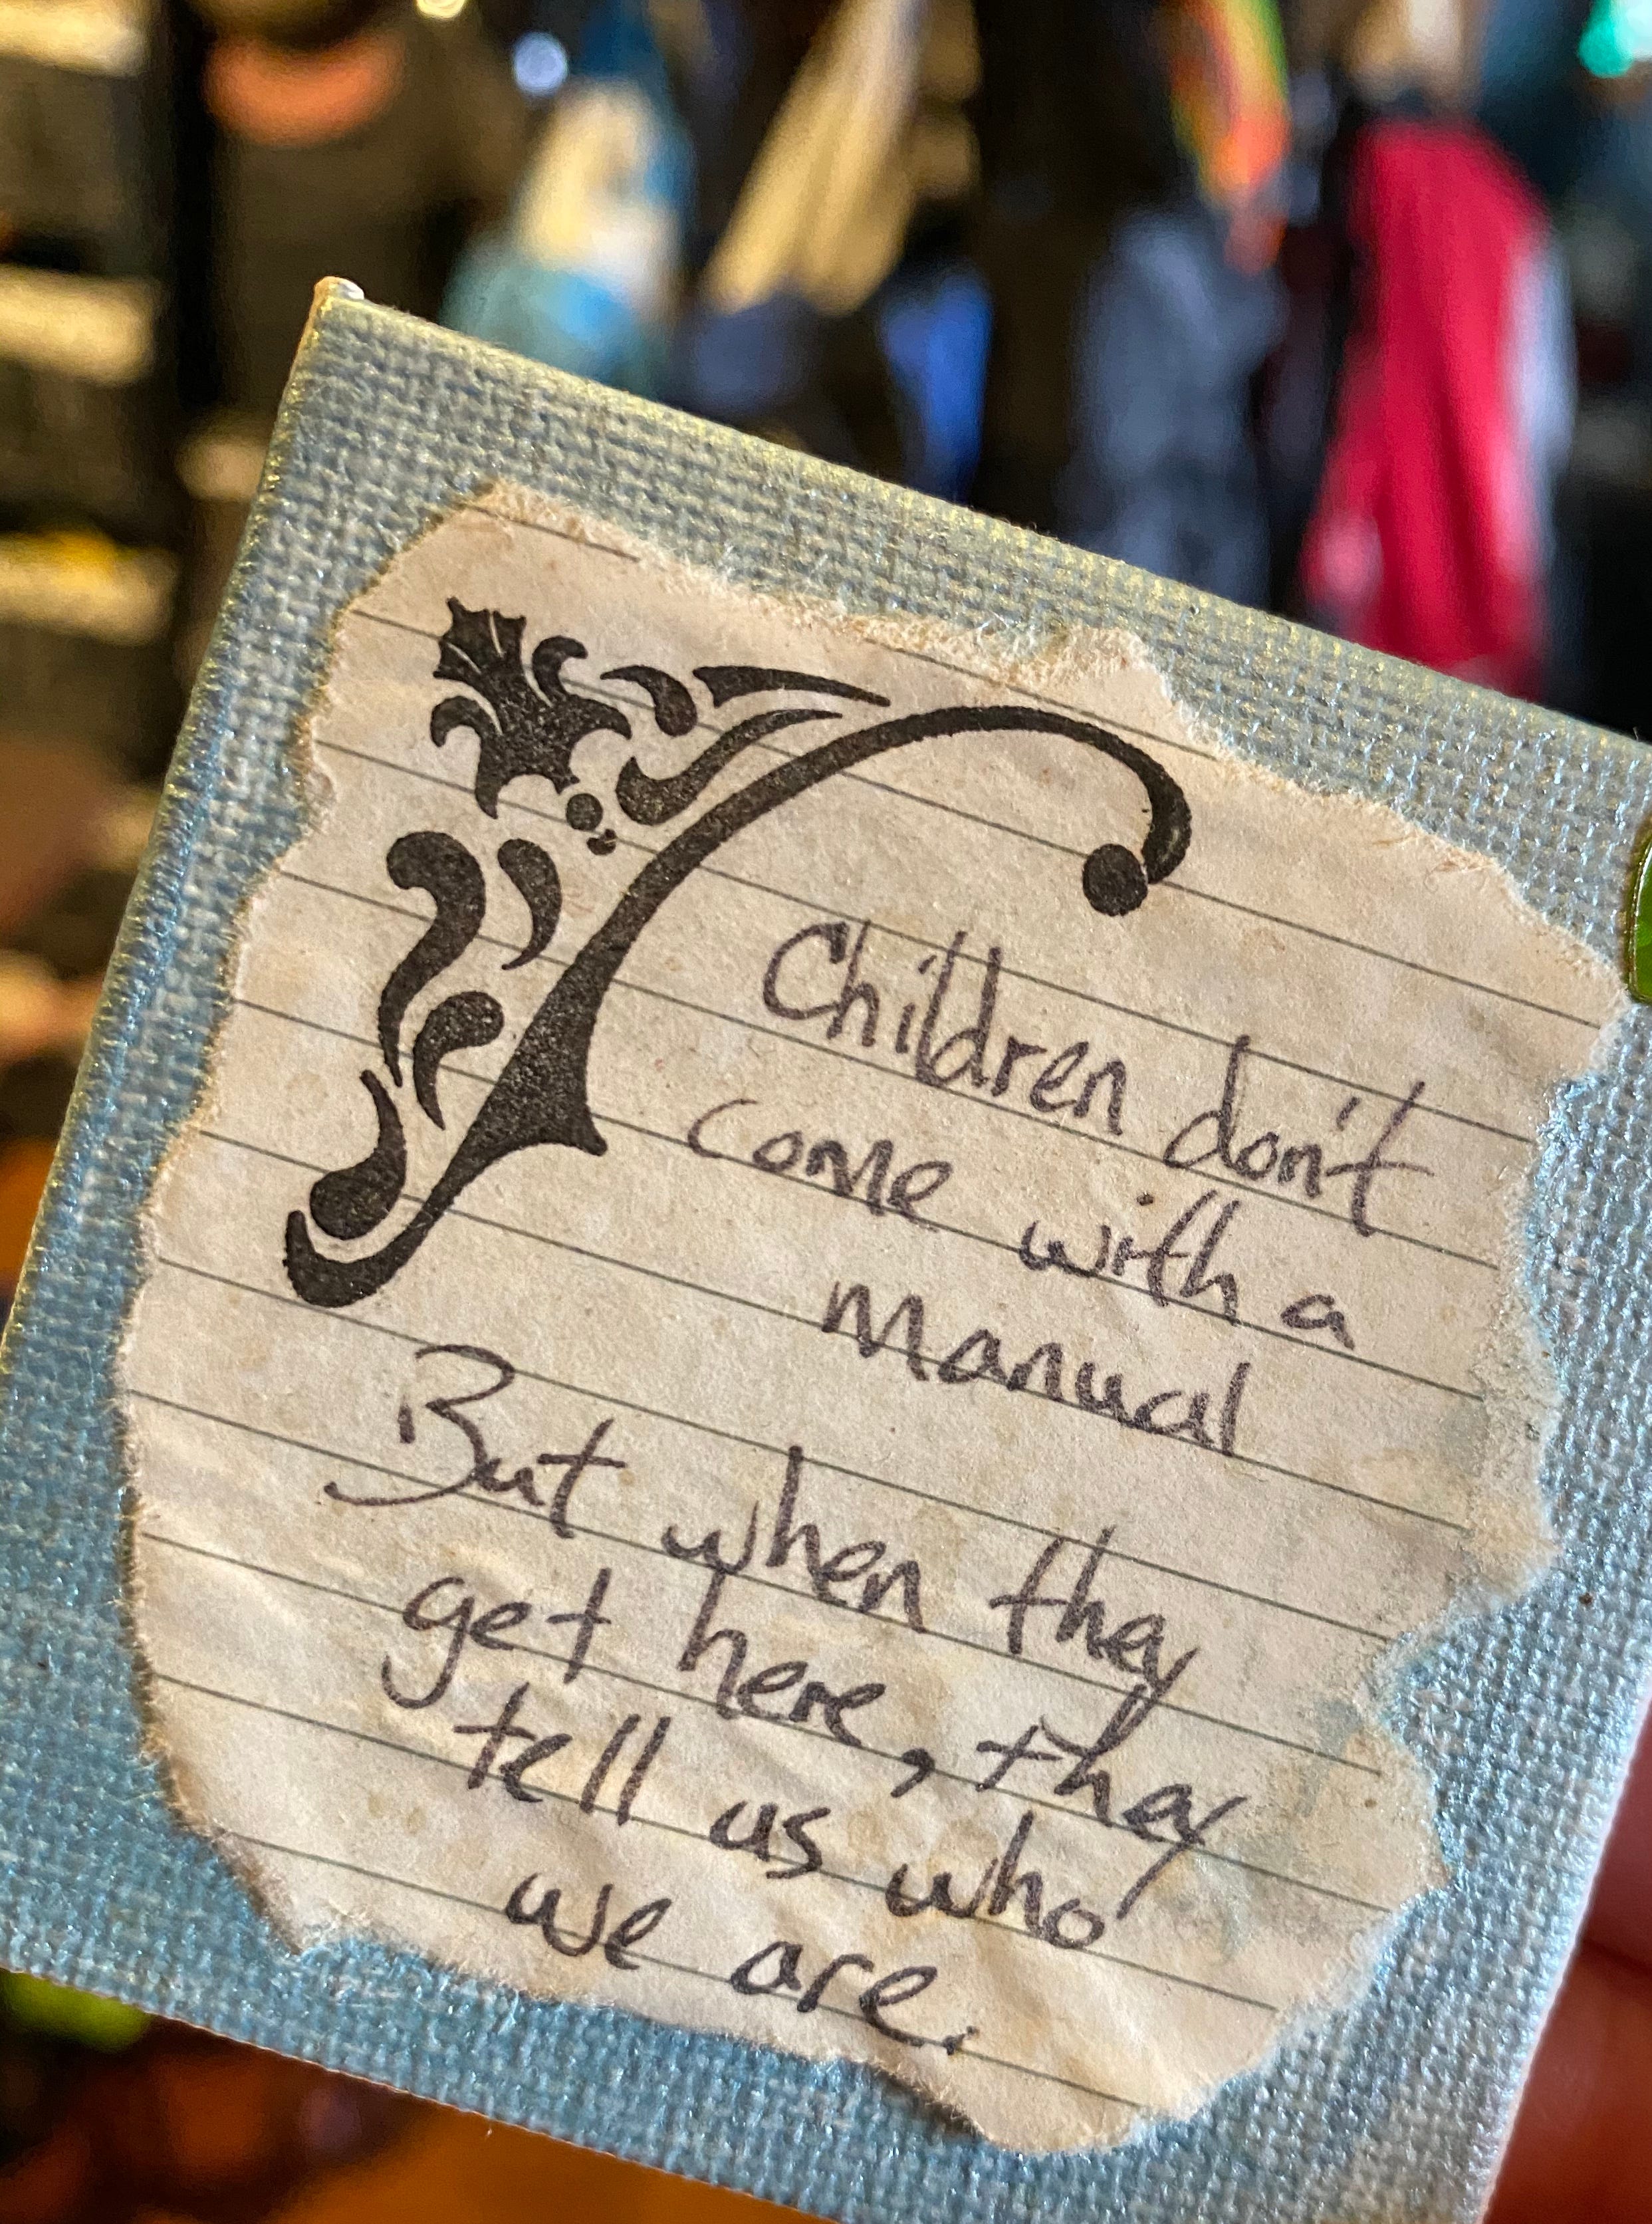 Children don't
come with a
manual
But when they
get here, they
tell us who
we are.